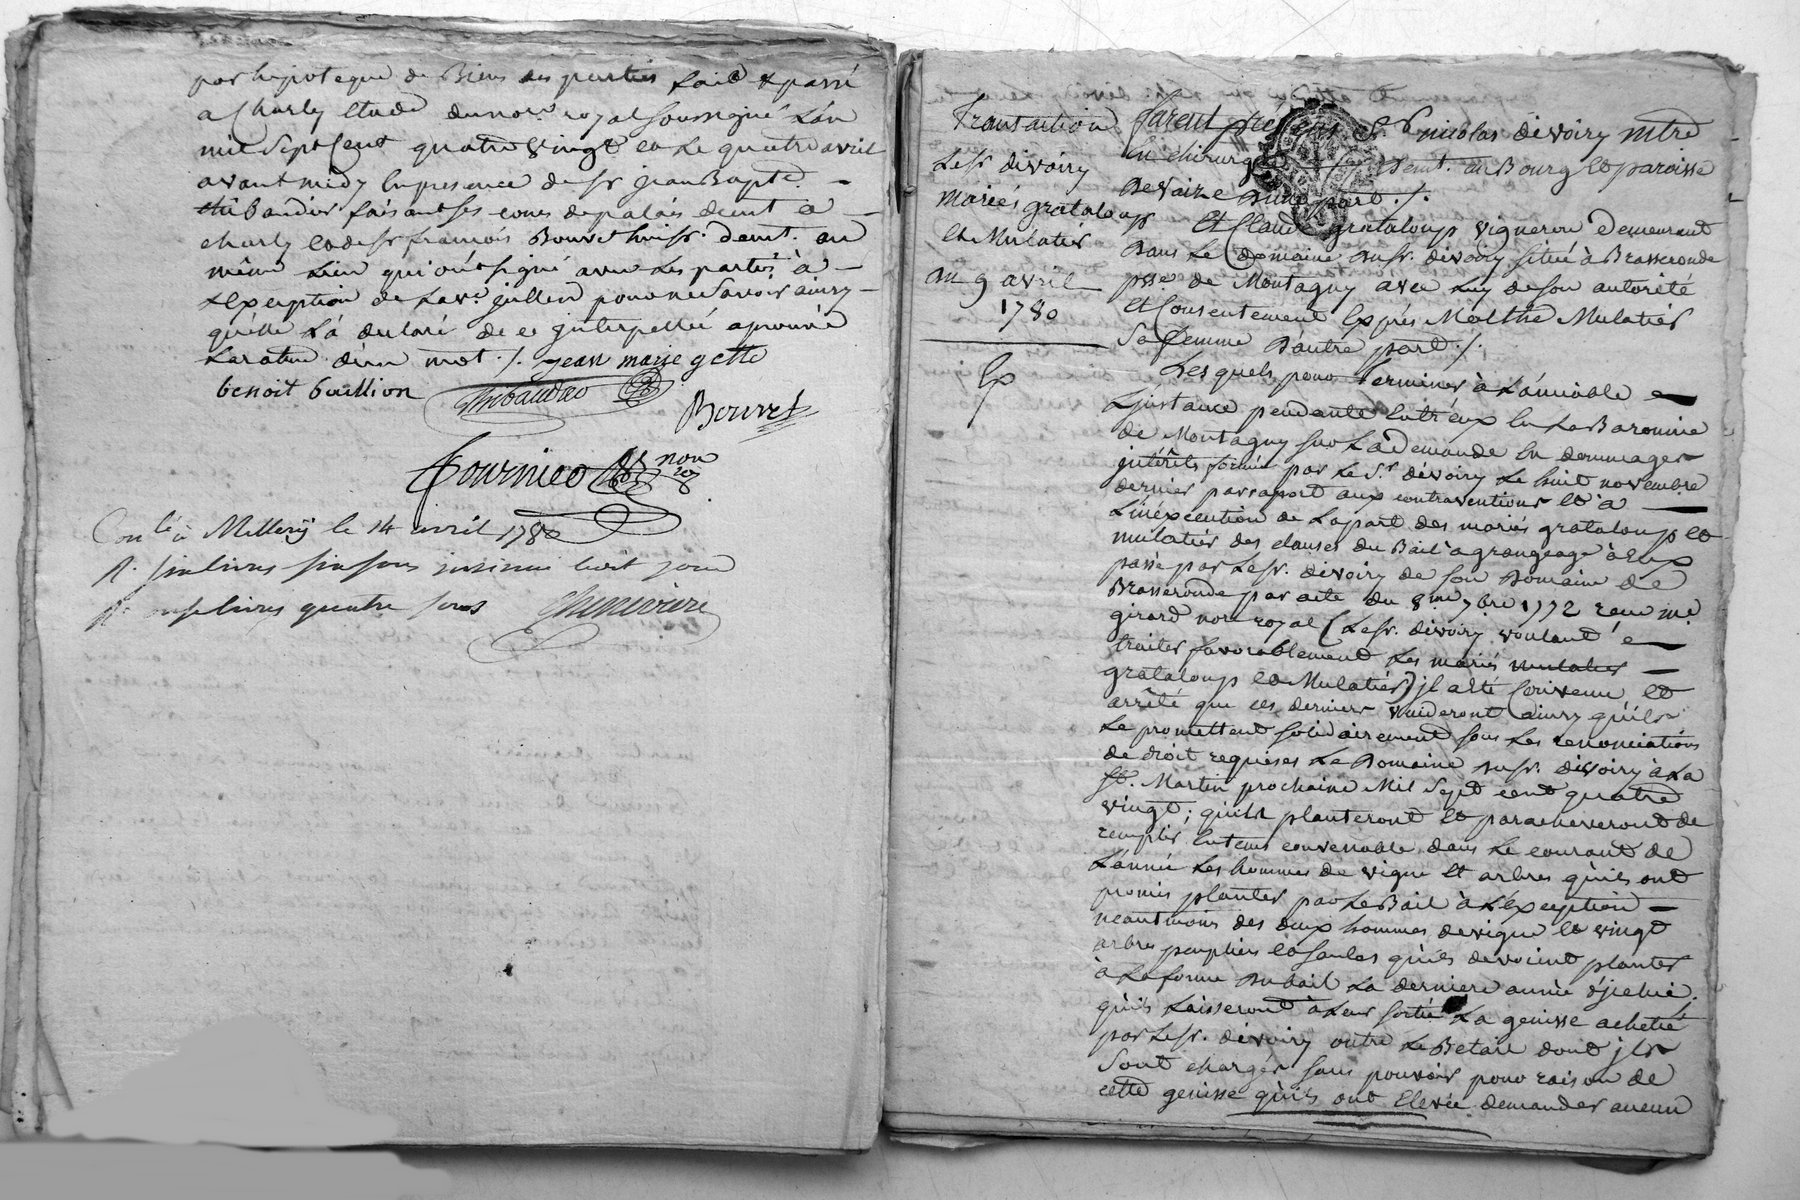 par hipoteque de Biens des parties fait & passé
a Charly Etude du nore. royal soussigné L'an
mil sept Cent quatre vingt et Le quatre avril
avant midy En presence de sr jean Bapte. —
thibaudier faisant ses cours de palais demt a —
charly et de sr françois Bouvet huissr. demt. au
même Lieu qui ont signé avec Les parties à —
L'exception de La ve. jullien pour ne savoir ainsy —
qu'elle L'a declaré de ce jnterpellée aprouvé
La rature d'un mot ./. jean marie gette
benoit buillion Thibaudier
Bouvet
Fournier nore
Conlé à Millery le 14 avril 1780
R. six livres six sous insinué huit jour
R. onze livres quatre sous Chenevière
Transaction
Le sr devoiry
Mariés grataloup
Et Mulatier
Du 9 avril
1780
Ex
Furent présens Sr. nicolas devoiry mtre
En chirurgie demt. au Bourg et paroisse
De vaize D'une part ./.
Et Claude grataloup vigneron Demeurant
Dans Le Domaine du sr. devoiry situé à Brasseronde
psse. de Montagny avec Luy de son autorité
Et Consentement Exprés Malthe Mulatier
Sa femme D'autre part ./.
Les quels pour Terminer à L'amiable
L'jnstance pendante Entr'eux En La Baronnie
de Montagny sur La Demande En dommages
jntérêts formée par Le Sr. dévoiry Le huit novembre
dernier par raport aux contraventions Et à
L'inéxécution de La part des mariés grataloup et
mulatier des clauses du Bail à grangeage à Eux
passé par Le sr. dévoiry de son Domaine de
Brasseronde par acte du 8me. 7bre 1772 reçu me.
girard nore royal (Le sr. dévoiry voulant
traiter favorablement Les mariés mulatier —
grataloup et Mulatier) jl a Eté Convenu Et
arrêté que ces derniers vuideront ainsy qu'ils
Le promettent solidairement sous Les renonciations
de droit requises Le Domaine du sr. dévoiry à La
St. Martin prochaine Mil Sept cent quatre
vingt ; qu'ils planteront Et paracheveront de
remplir En tems convenable dans Le courant de
L'année Les hommes de vigne Et arbres qu'ils ont
promis planter par Le Bail à L'Exception —
neantmoins des deux hommes de vigne Et vingt
arbres peupliers et saules qu'ils devoient planter
à La forme du bail La derniere année d'jcelui ;
qu'ils Laisseront à Leur sortie La genisse achetée
par Le sr. dévoiry outre Le Betail dont jls
Sont chargés sans pouvoir pour raison de
cette genisse qu'ils ont Elevée demander aucun